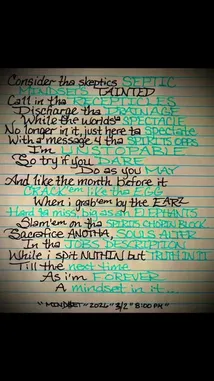 Consider tha skeptics SEPTIC
MINDSETS TAINTED
Call in tha RECEPTICLES
Discharge tha DRAINAGE
While the worlds a SPECTACLE
No longer in it, just here ta spectate
With a message 4 tha SPIRITS OPPS
I'm UNSTOPABLE
So try if you DARE
Do as you MAY
And like the month before it
CRACK'em like the EGG
When i grab'em by the EARZ
Hard ta miss big as an ELEPHANTS
Slam'em on tha SPIRITS CHOPPIN BLOCK
Sacrafice ANOTHA, SOULS ALTER
In tha JOBS DESCRIPTION
While i spit NUTHIN but TRUTH IN IT
Till the next time
As i'm FOREVER
A mindset in it...
"MINDSET" 2024 "3/2" 8:00 PM"